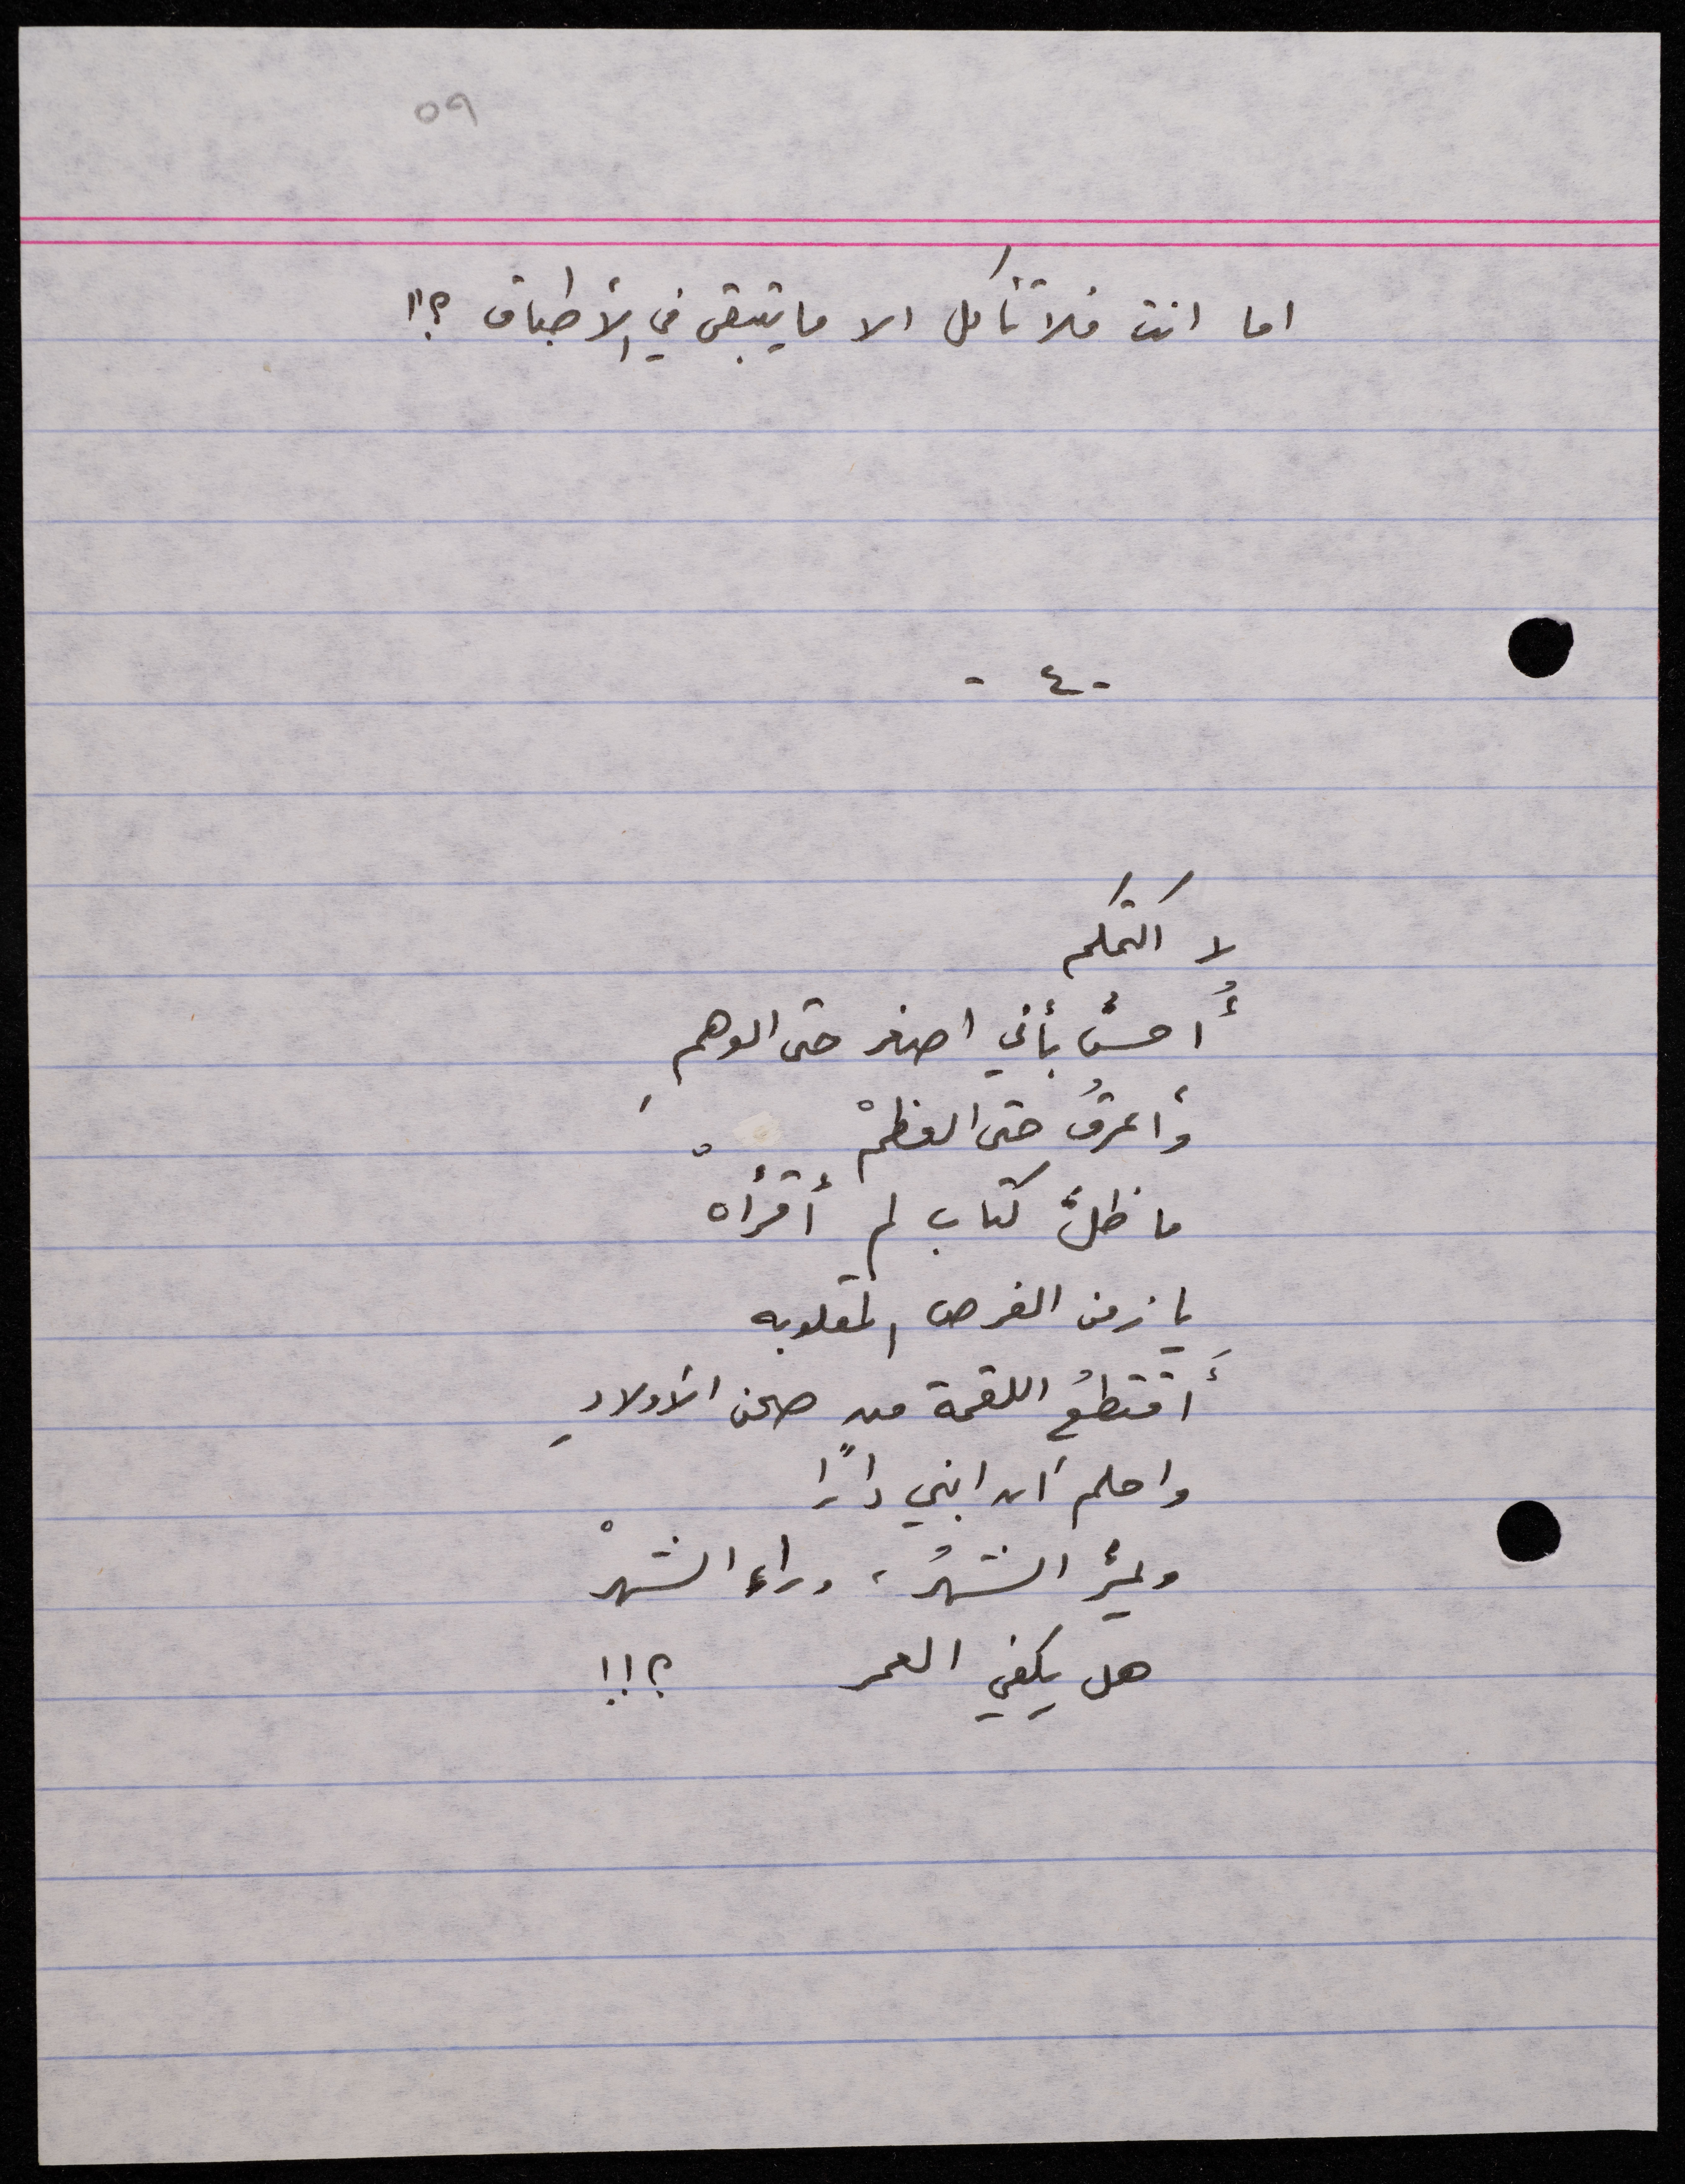 ٥٩
اما انت فلا تأكل الا ما يتبقى في الأطباق ؟!!
- ٤ -
لا اكتمكم
أُحسُّ بأني اصغر حتى الوهمِ
وأعرقُ حتى العظمْ
ما ظلَّ كتاب لم أقرأهْ
يا زمن الفرص المقلوبه
أَقتطعُ اللقمة من صحن الأولادِ
واحلم أن ابني دارًا
ويمرُّ الشهرُ، وراء الشهرْ
هل يكفي العمر ؟!!